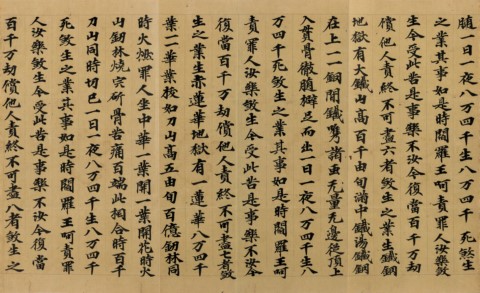 髓一日一夜八万四千生八万四千死煞生
之業其事如是時閻羅王呵責罪人汝樂煞
生今受此苦是事樂不汝今復當百千万劫
償他人責終不可盡六者煞生之業生鐵鋼
地獄有大鐵山高百千由旬滿中鐵湯鐵鋼
在上一一鋼間鐵諸虫无量无邊從頂上
入貫骨徹髓擗足而出一日一夜八万四千生八
万四千死煞生之業其事如是時閻羅王呵
責罪人汝樂煞生今受此苦是事樂不汝今
復當百千万劫償他人責終不可盡七者煞
生之業生赤蓮華地獄有一蓮華八万四千
葉一葉如刀山高五由旬百億釰林同
時火燃罪人坐中華一葉開一葉開花時火
山釰林燒突斫骨苦痛百端此相合時百千
刀山同時切已一日一夜八万四千生八万四千
死煞生之業其事如是時閻羅王呵責罪
人汝樂煞生今受此苦是事樂不汝今復當
百千万劫償他人責終不可盡八者煞生之